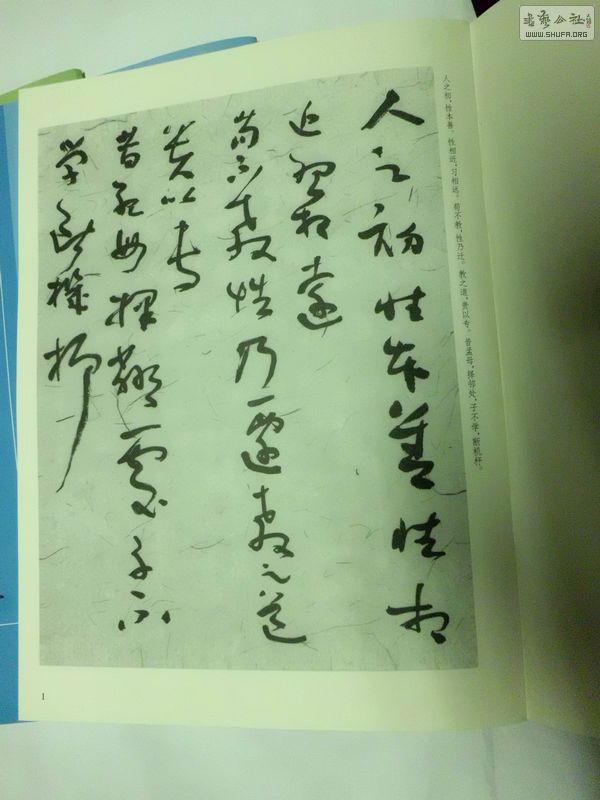 書藝公社
WWW.SHUFA.ORG
人之初，性本善。性相近，习相远。苟不教，性乃迁。教之道，贵以专。昔孟母，择邻处，子不学，断机杼。
人之初性本善性相
近習相遠
苟不教性乃遷教之道
贵以专
昔孟母擇鄰處子不
学断機杼
1